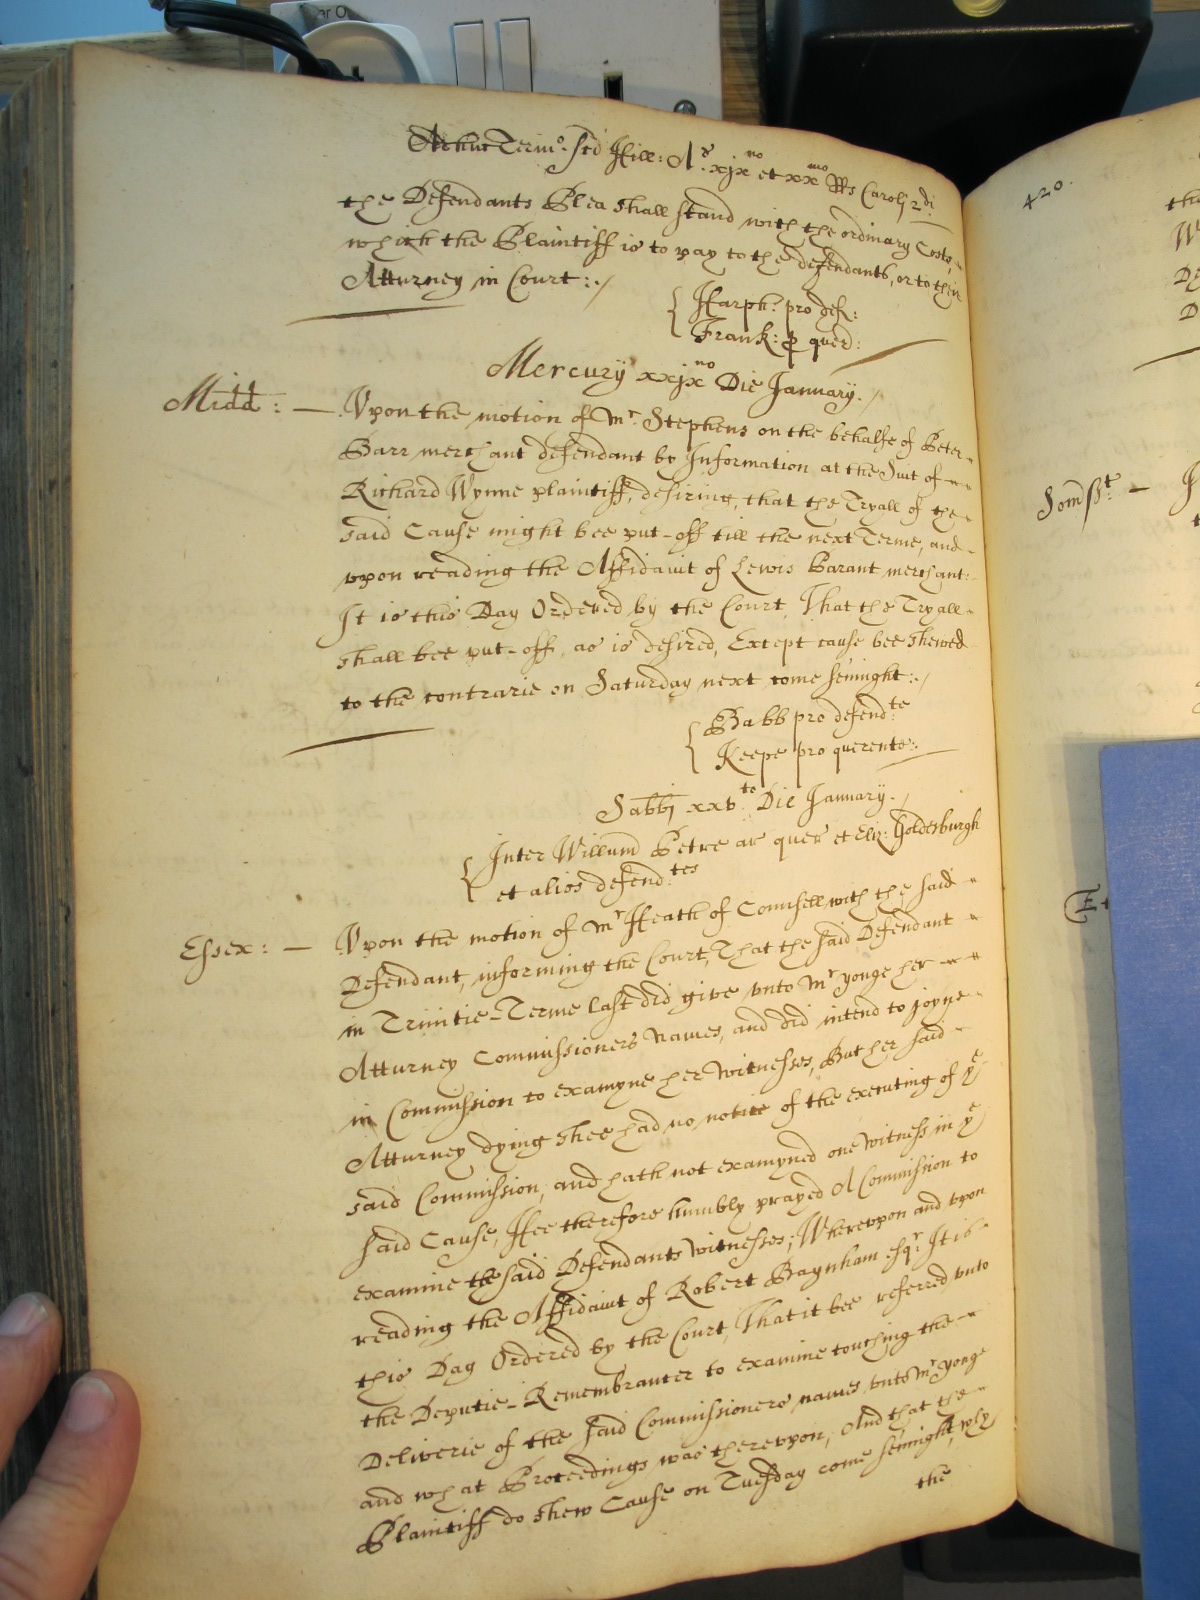 Adhuc Termo. scd Hill: Ao. xjxno et xxmo RRs Carolj 2di
the Defendants Plea shall stand with the ordinary Costs,
which the Plaintiff is to pay to the defendants, or to their
Atturney in Court:./
Harph: pro def:
Frank: p quer:
Mercurij xxjxno Die January./
Midd: — Vpon the motion of Mr Stephens on the behalfe of Peter
Barr merchant defendant by Information at the Suit of
Richard Wynne plaintiff, desiring, that the Tryall of the
said Cause might bee put-off till the next Terme, and
vpon reading the Affidavit of Lewis Barant merchant:
It is this Day Ordered by the Court, That the Tryall
shall bee put-off, as is desired, Except cause bee shewed
to the contrarie on Saturday next come sennight:./
Babb pro defendte
Keepe pro querente:
Sabbj xxvto Die January./
Inter Willum Petre ar quer et Eliz: Goldesburgh
et alios defendtes
Essex: — Vpon the motion of Mr Heath of Counsell with the said
Defendant, informing the Court, That the said Defendant
in Trinitie-Terme last did give vnto Mr yonge her
Atturney Commissioners Names, and did intend to joyne
in Commission to examyne her Witnesses, But her said
Atturney dying shee had no notice of the executing of ye
said Commission, and hath not examyned one witness in ye
said Cause, Hee therefore humbly prayed A Commission to
examine the said Defendants witnesses; Wherevpon and vpon
reading the Affidavit of Robert Baynham esqr: It is
this Day Ordered by the Court, That it bee referred vnto
the Deputie-Remembrancer to examine touching the
Deliverie of the said Commissioners names vnto Mr yonge
and what Proceedings was therevpon, And that the
Plaintiff do shew Cause on Tuesday come sennight, why
the
420.
th
W
D
D
Somsst: —